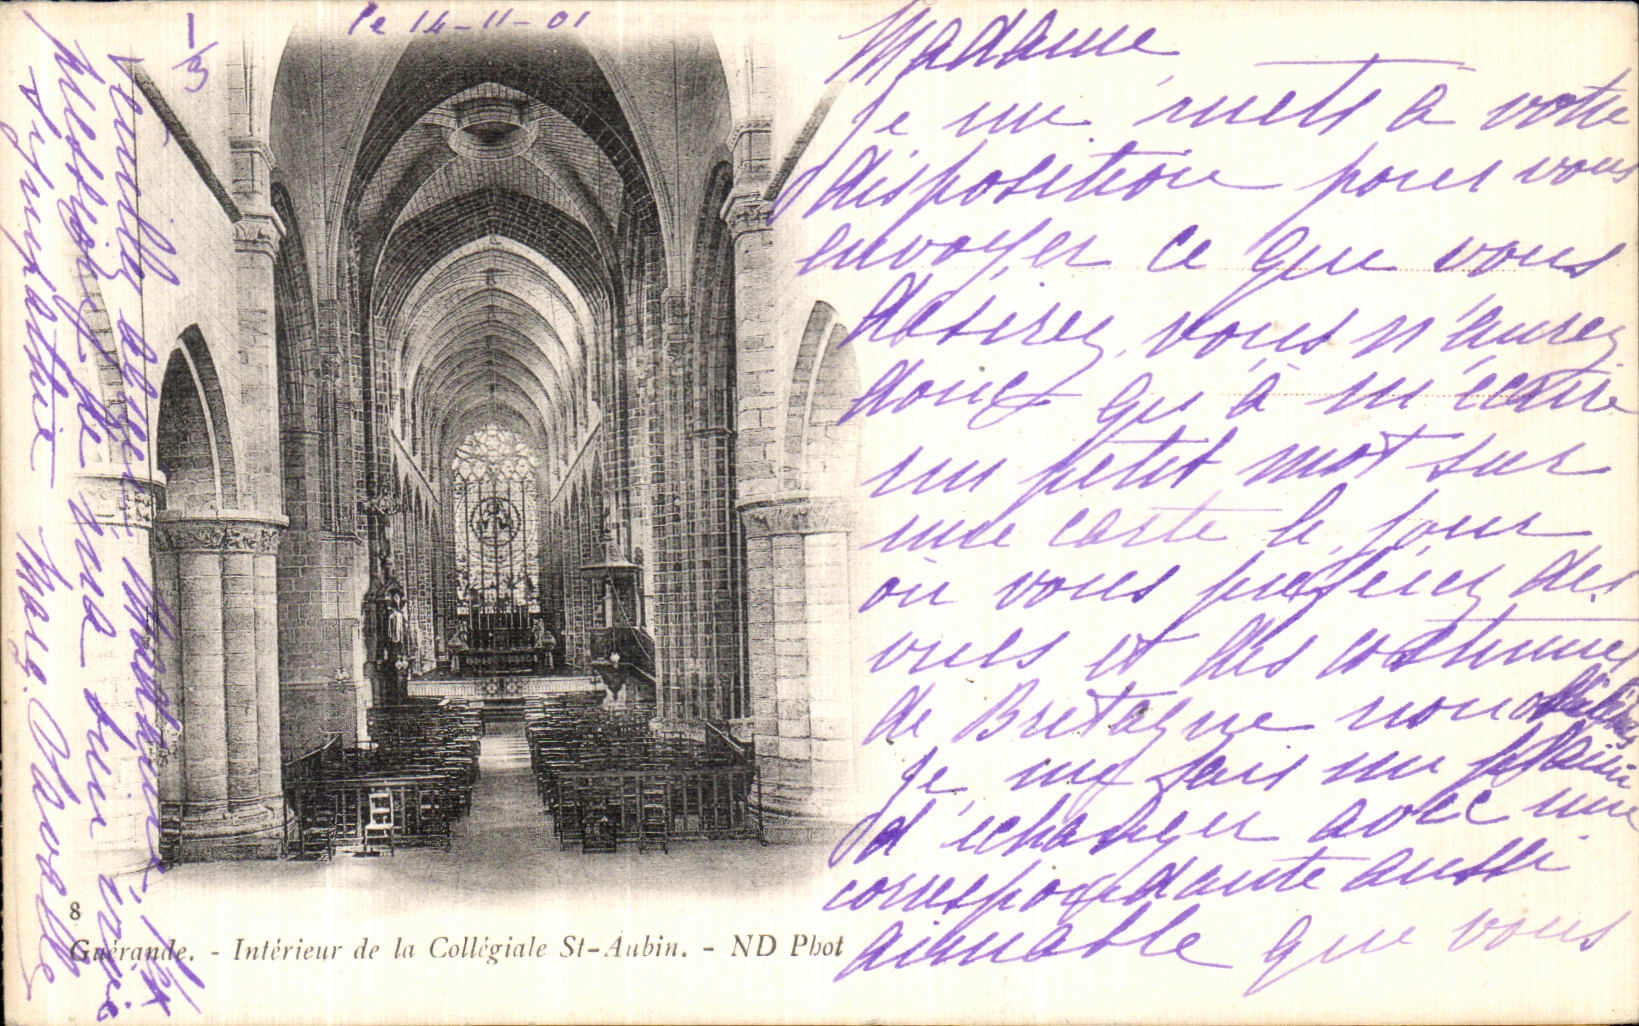 le 14-11-01
1/3
Madame
Je me mets à votre
disposition pour vous
envoyer ce que vous
désirez, vous n'aurez
donc qu'à m'écrire
un petit mot sur
une carte le jour
où vous préférez des
vues et des costumes
de Bretagne
Je me fais un plaisir
d'échanger avec une
correspondante aussi
aimable que vous
Veuillez agréer Madame
l'expression de ma
sympathie
8
Guérande. - Intérieur de la Collégiale St-Aubin. - ND Phot